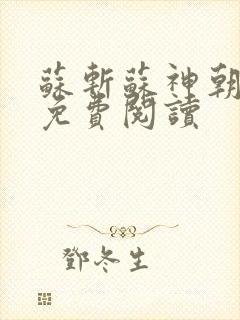 蘇斬蘇神朝
免費閱讀
鄧冬生